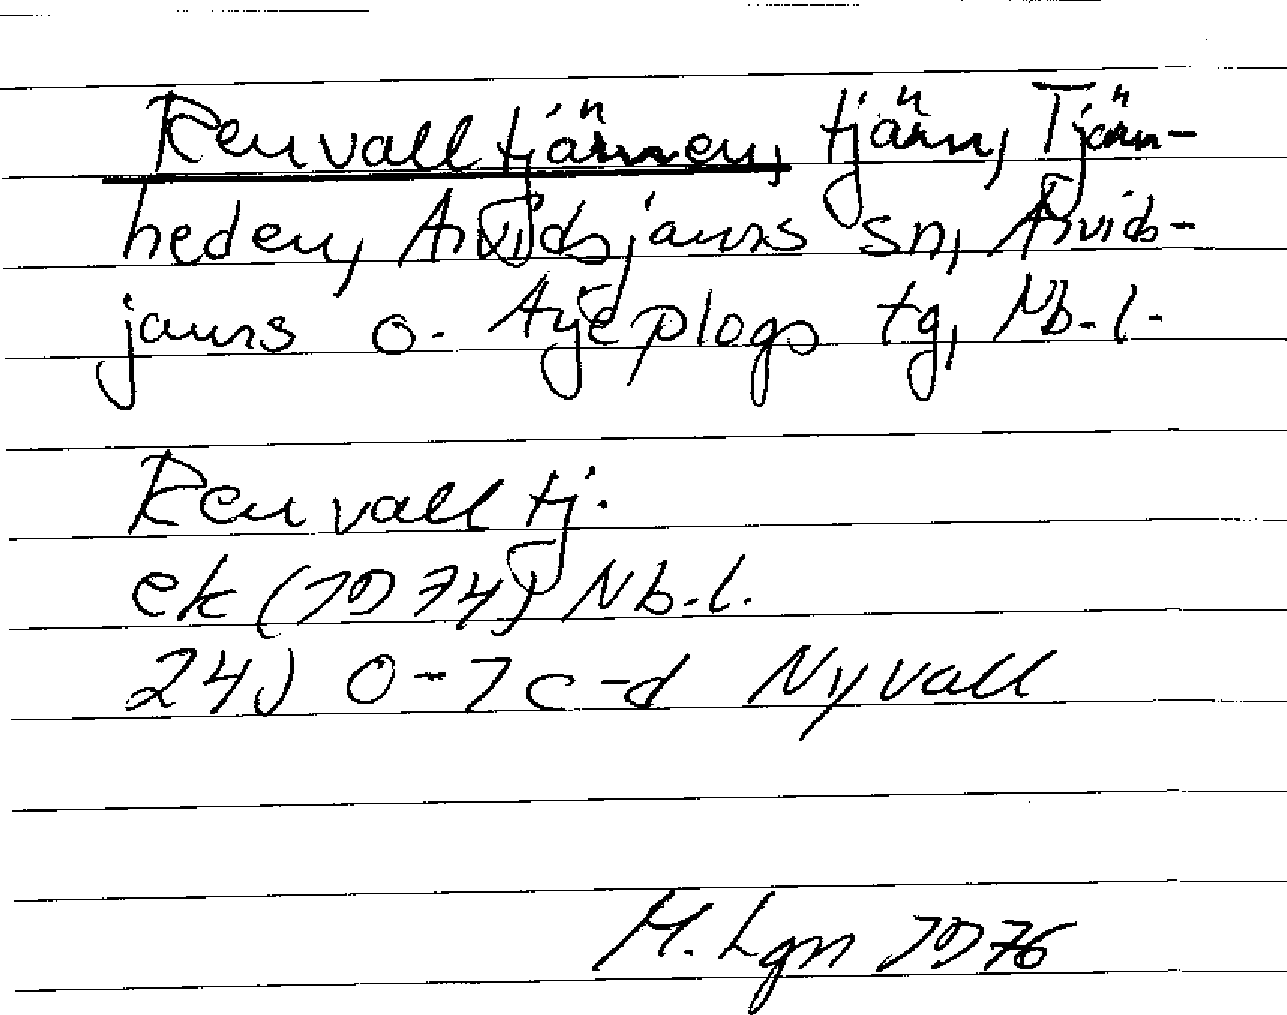 Renvalltjärnen, tjärn, Tjärn-
heden, Arvidsjaurs sn, Arvids-
jaurs o. Arjeplogs tg, Nb.l.
Renvalltj.
ek (1974) Nb.l.
24J 0-1c-d Nyvall
M. Lgn 1976